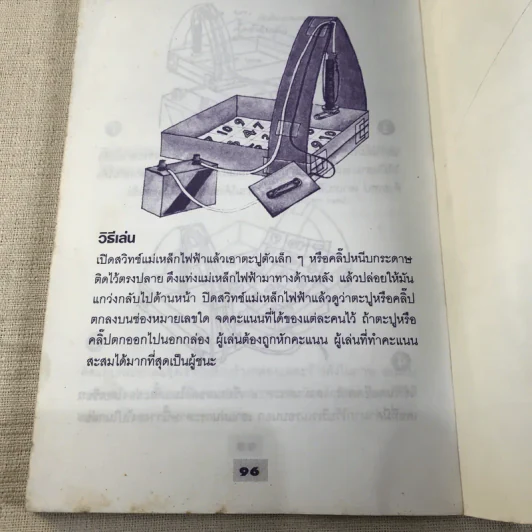 วิธีเล่น
เปิดสวิทช์แม่เหล็กไฟฟ้าแล้วเอาตะปูตัวเล็ก ๆ หรือคลิ๊ปหนีบกระดาษ
ติดไว้ตรงปลาย ดึงแท่งแม่เหล็กไฟฟ้ามาทางด้านหลัง แล้วปล่อยให้มัน
แกว่งกลับไปด้านหน้า ปิดสวิทช์แม่เหล็กไฟฟ้าแล้วดูว่าตะปูหรือคลิ๊ป
ตกลงบนช่องหมายเลขใด จดคะแนนที่ได้ของแต่ละคนไว้ ถ้าตะปูหรือ
คลิ๊ปตกออกไปนอกกล่อง ผู้เล่นต้องถูกหักคะแนน ผู้เล่นที่ทำคะแนน
สะสมได้มากที่สุดเป็นผู้ชนะ
96